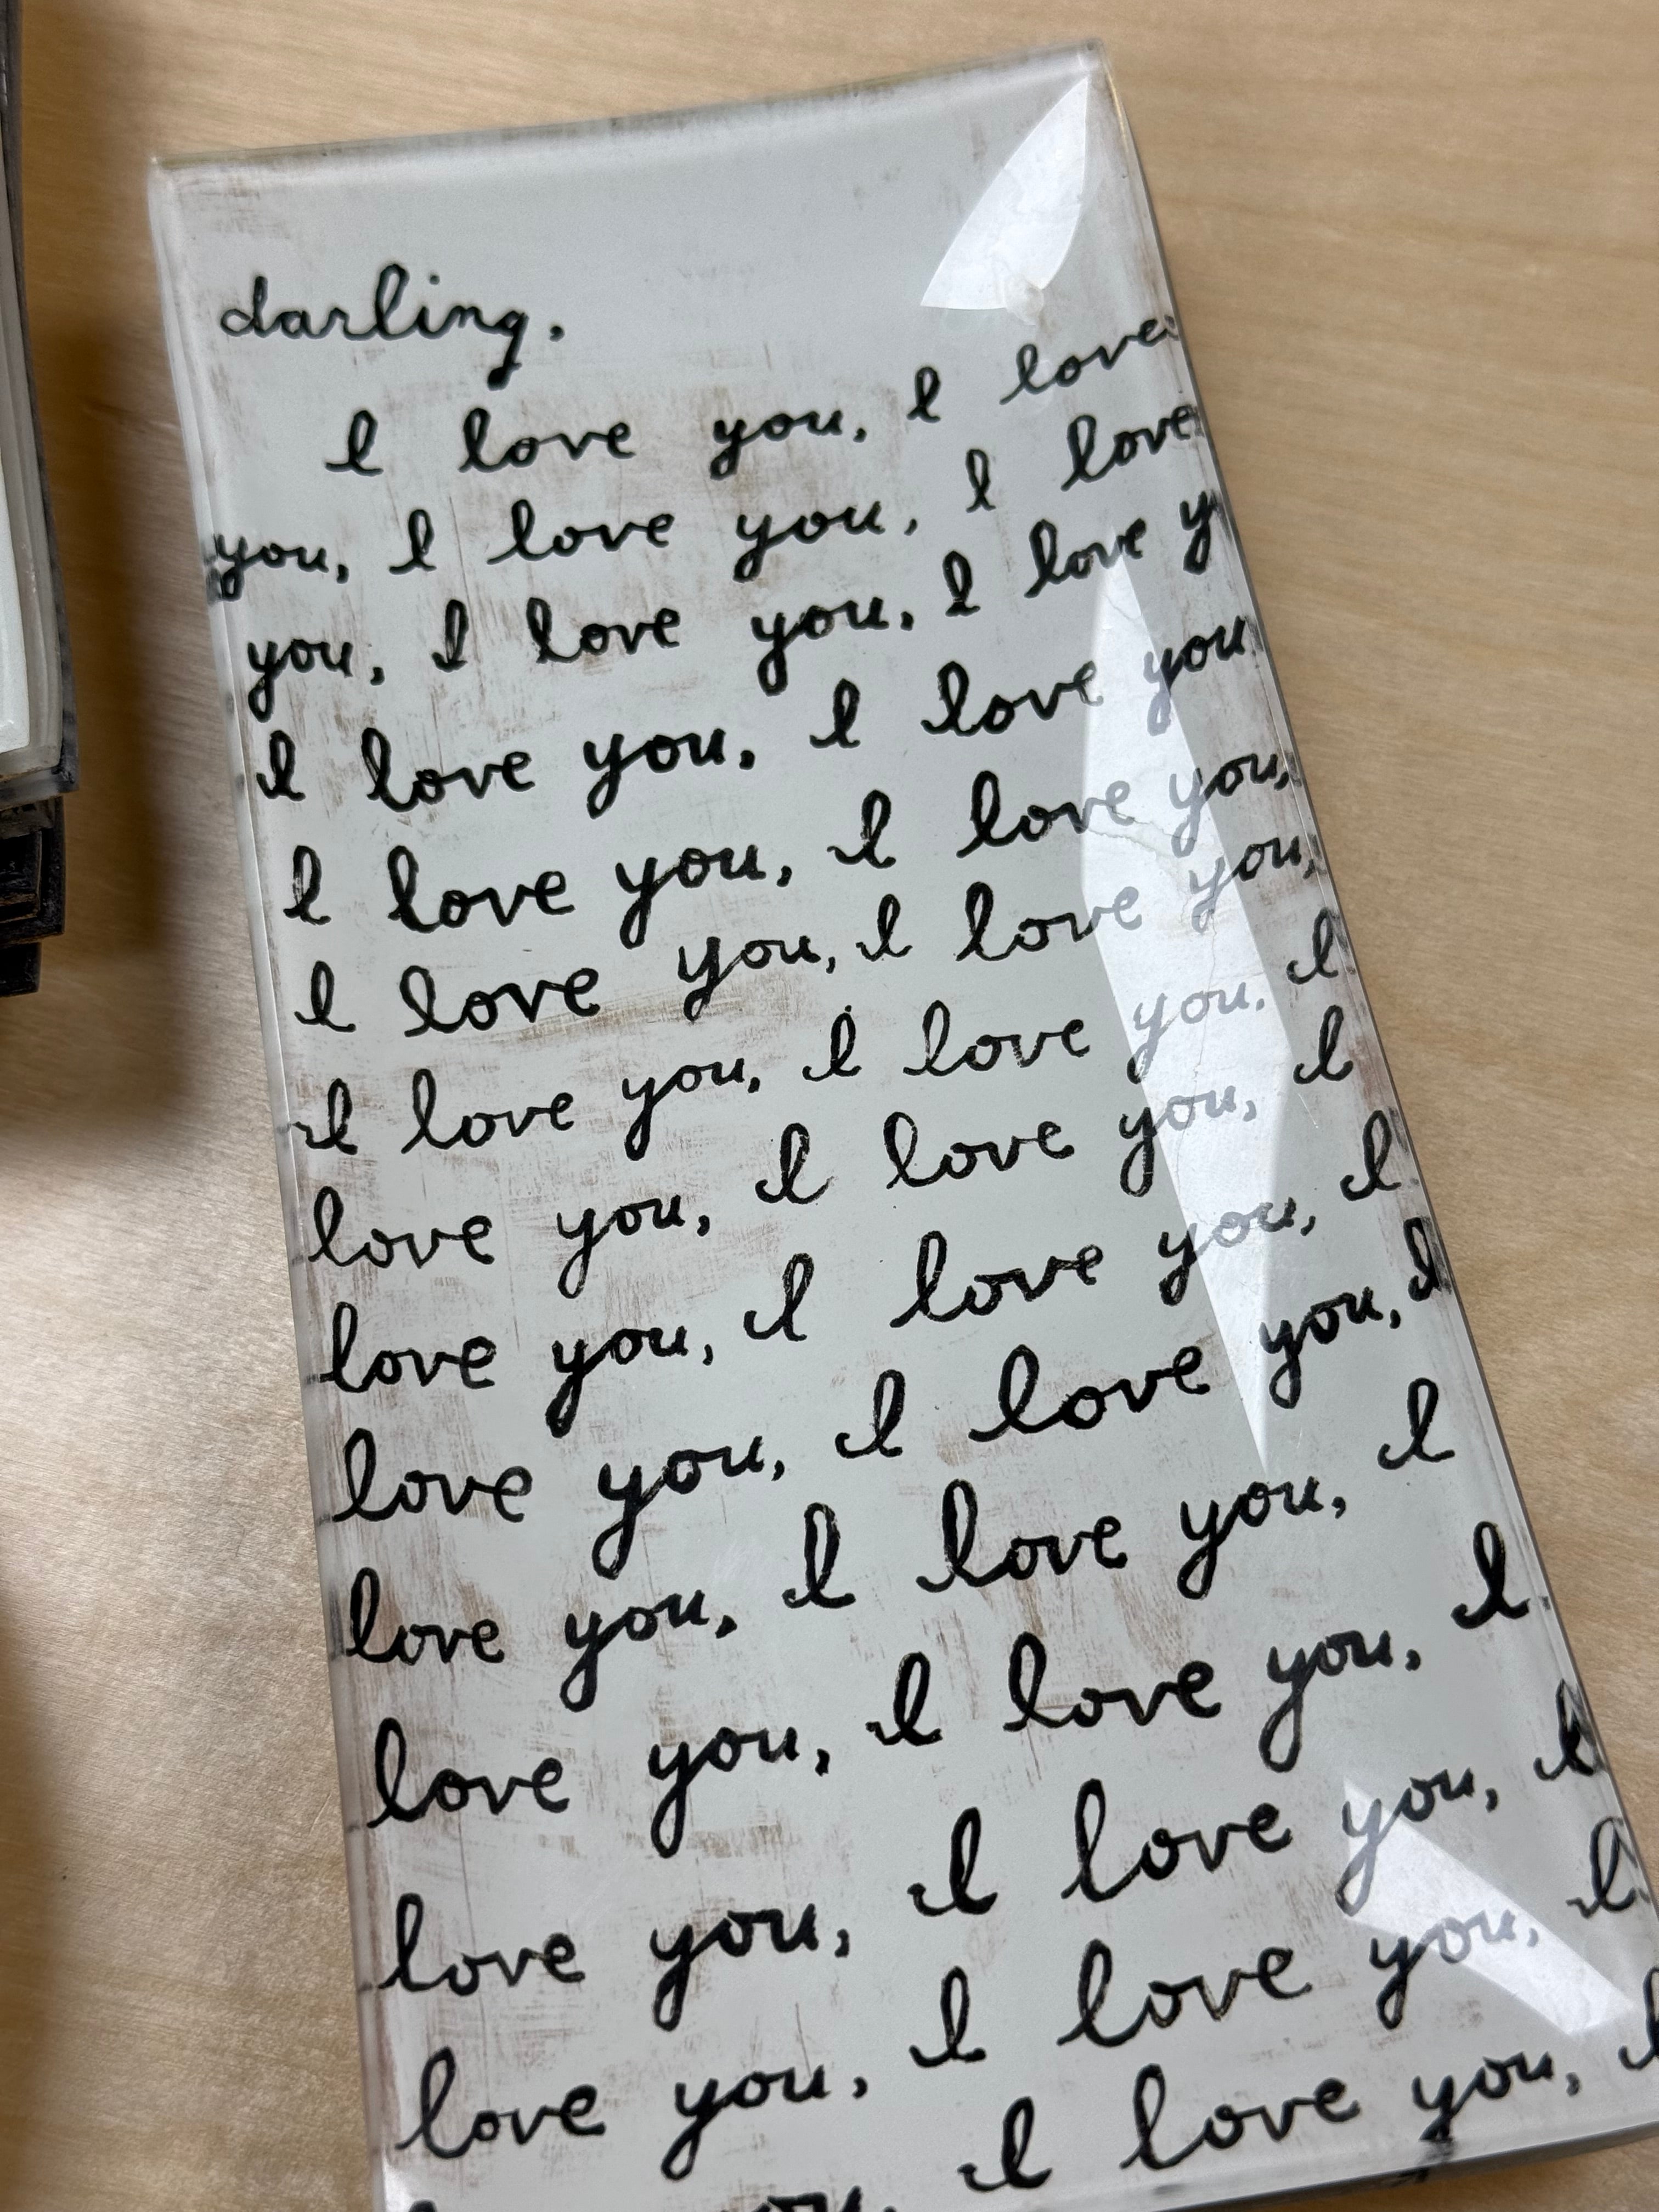 darling,
I love you, I love
you, I love you, I love
you, I love you, I love y
I love you, I love you
I love you, I love you,
I love you, I love you,
I love you, I love you, I
love you, I love you, I
love you, I love you, I
love you, I love you, I
love you, I love you, I
love you, I love you, I
love you, I love you, I
love you, I love you, I
I love you, I